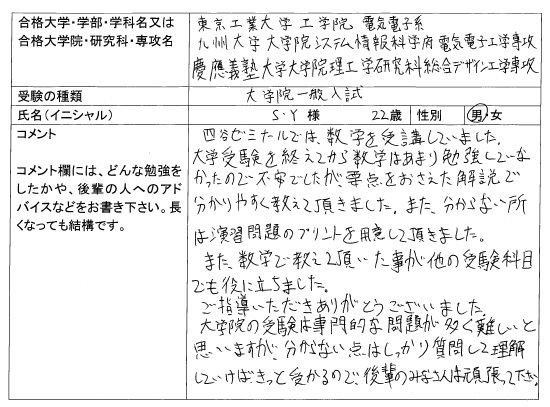 合格大学・学部・学科名又は
合格大学院・研究科・専攻名
東京工業大学 工学院 電気電子系
九州大学大学院システム情報科学府電気電子工学専攻
慶應義塾大学大学院理工学研究科総合デザイン工学専攻
受験の種類
大学院一般入試
氏名(イニシャル)
S・Y 様 22歳 性別 男・女
コメント
コメント欄には、どんな勉強を
したかや、後輩の人へのアド
バイスなどをお書き下さい。長
くなっても結構です。
四谷ゼミナールでは、数学を受講していました。
大学受験を終えてから数学はあまり勉強していな
かったので不安でしたが、要点をおさえた解説で
分かりやすく教えて頂きました。また、分からない所
は演習問題のプリントを用意して頂きました。
また、数学で教えて頂いた事が他の受験科目
でも役に立ちました。
ご指導いただきありがとうございました。
大学院の受験は専門的な問題が多く難しいと
思いますが、分からない点はしっかり質問して理解
していけばきっと受かるので、後輩のみなさんは頑張って下さい。